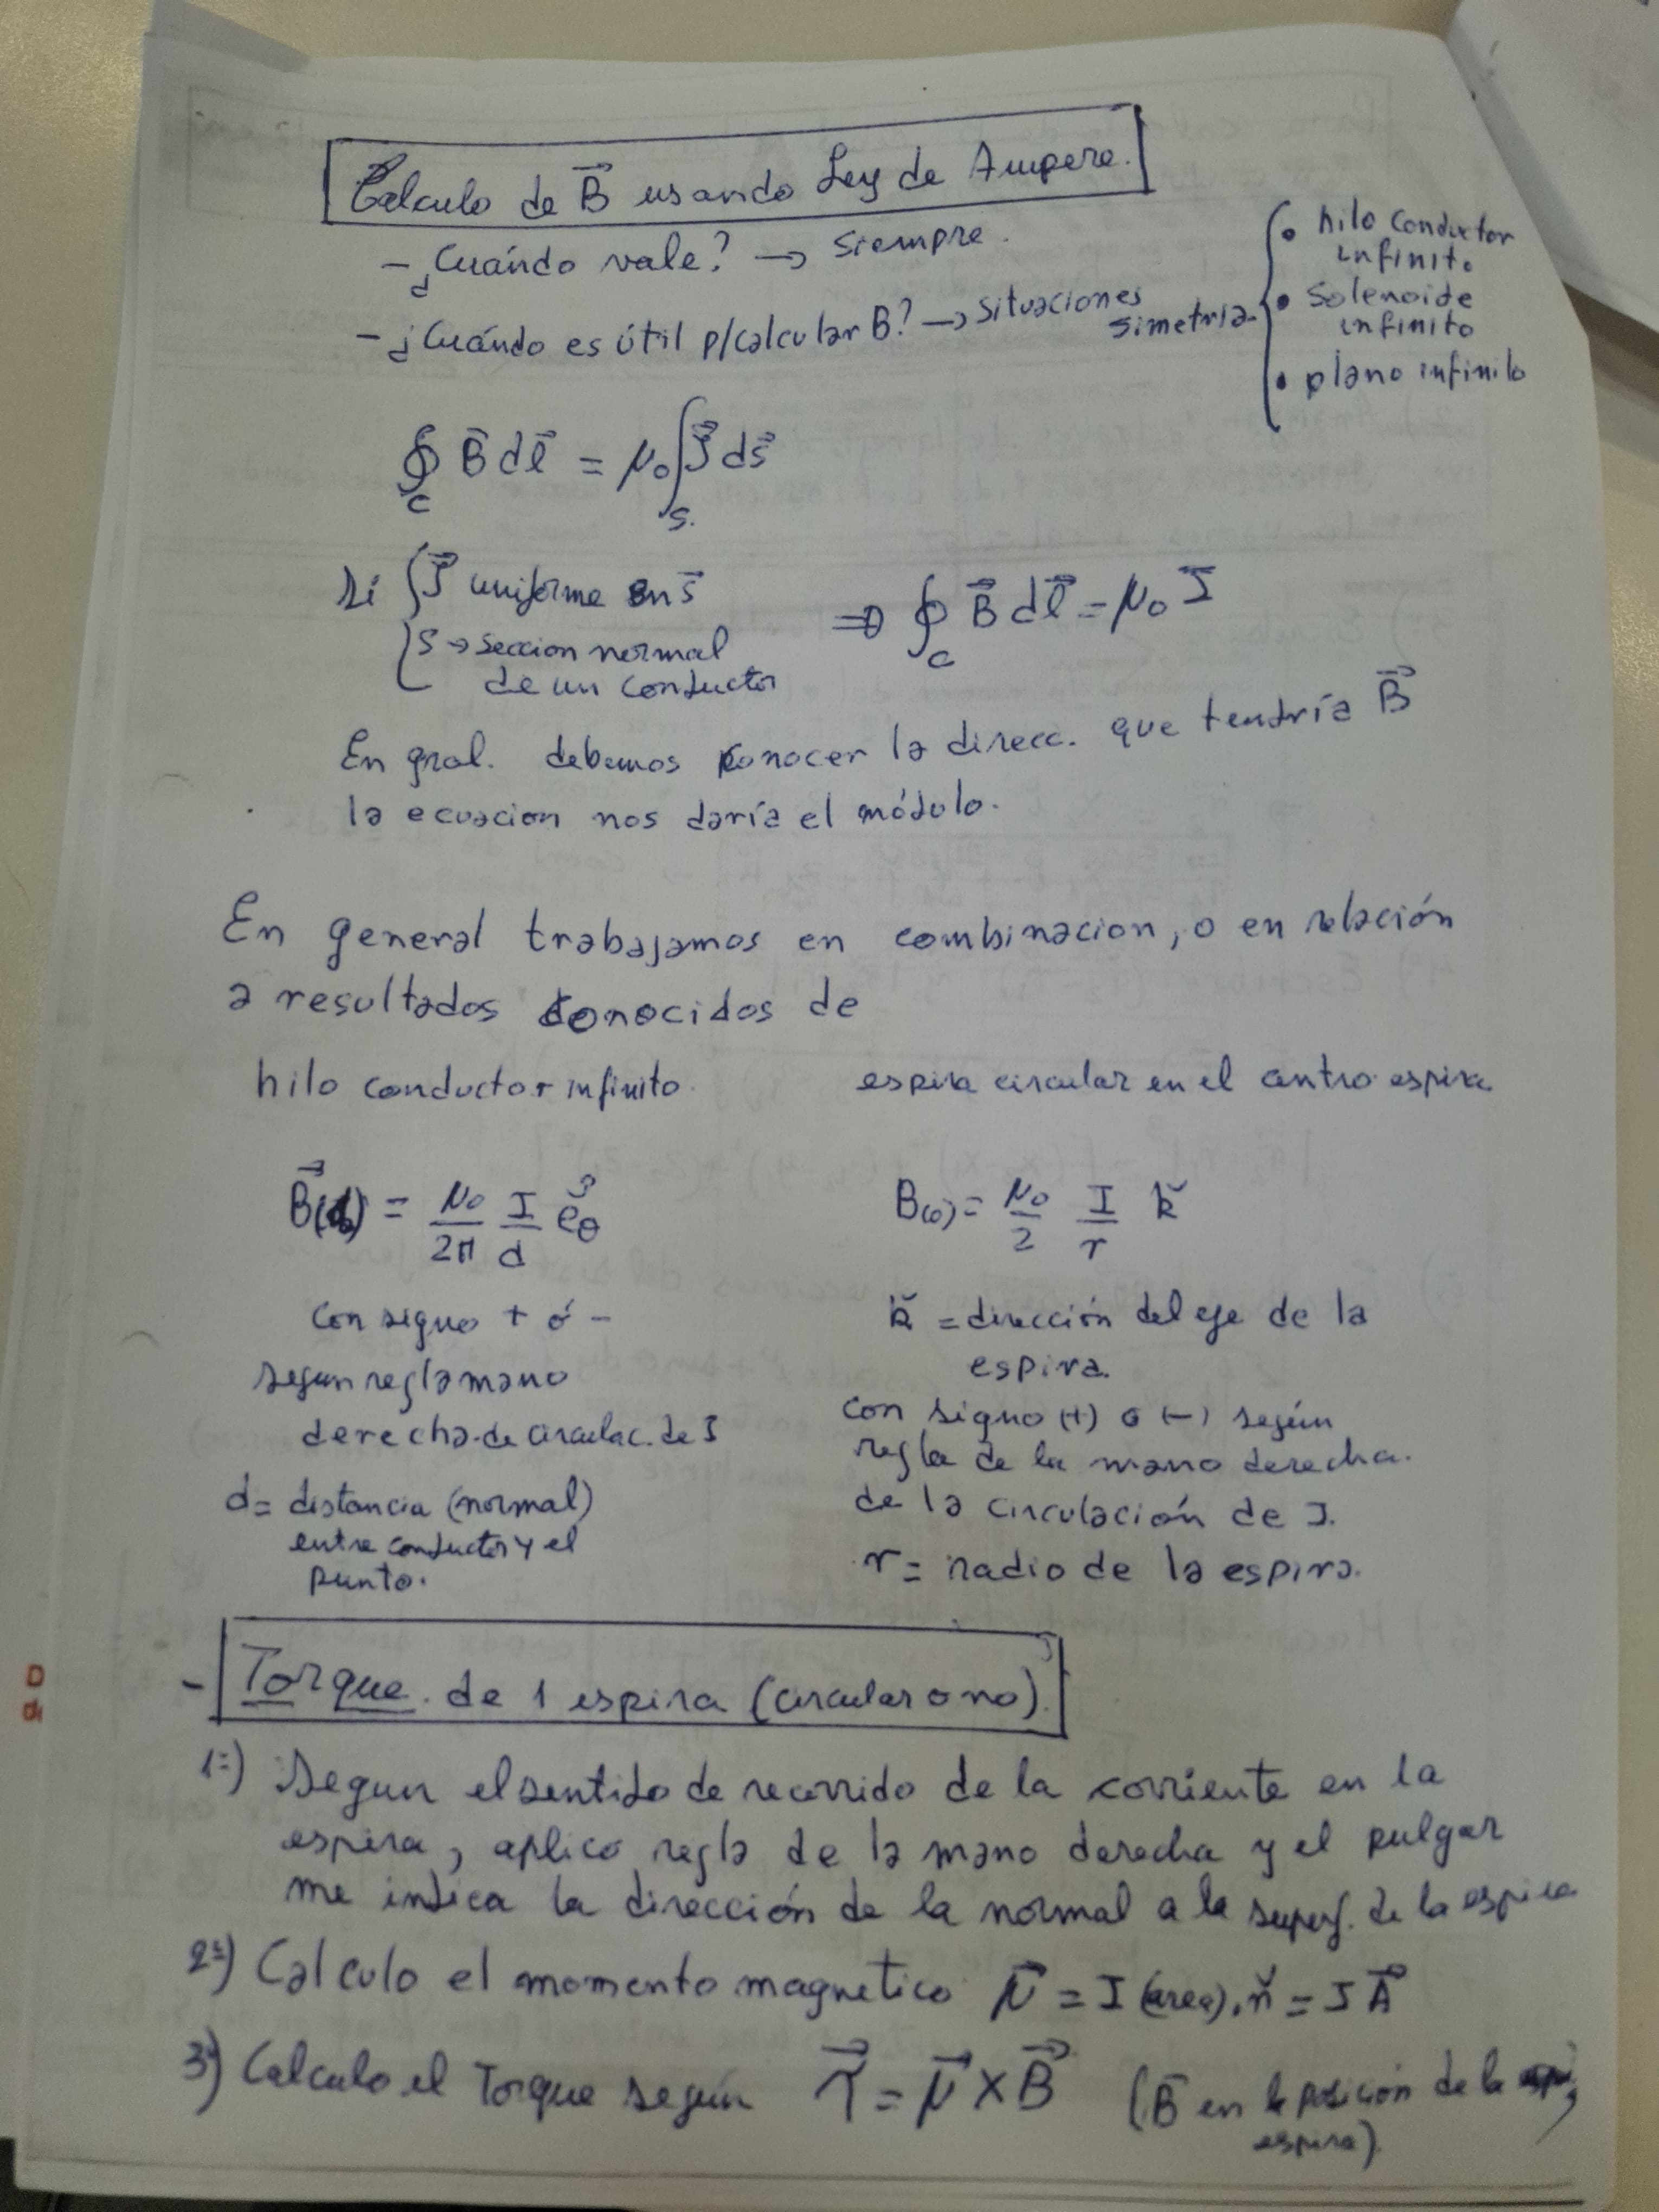 Calculo de B⃗ usando Ley de Ampere.
- ¿Cuándo vale? → Siempre.
- ¿Cuándo es útil p/calcular B? → Situaciones simetría
• hilo conductor infinito
• Solenoide infinito
• plano infinito
∮_C B⃗ dl⃗ = μ₀ ∫_S J⃗ ds⃗
Si { J⃗ uniforme en s⃗
S → seccion normal
de un conductor
⇒ ∮_C B⃗ dl⃗ = μ₀ I
En gral. debemos conocer la direcc. que tendría B⃗
la ecuacion nos daría el módulo.
En general trabajamos en combinacion, o en relación
a resultados conocidos de
hilo conductor infinito.
B⃗(d) = μ₀/2π I/d ĕ_θ
con signo + ó -
segun regla mano
derecha de circulac. de I
d = distancia (normal)
entre conductor y el
punto.
espira circular en el centro espira
B(0) = μ₀/2 I/r k̆
k̆ = dirección del eje de la
espira.
con signo (+) o (-) según
regla de la mano derecha.
de la circulación de I.
r = radio de la espira.
- Torque de 1 espira (circular o no)
1º) Segun el sentido de recorrido de la corriente en la
espira, aplico regla de la mano derecha y el pulgar
me indica la dirección de la normal a la superf. de la espira
2º) Calculo el momento magnetico μ⃗ = I (area). n̆ = I A⃗
3º) Calculo el Torque según τ⃗ = μ⃗ × B⃗ (B⃗ en la posición de la
espira).